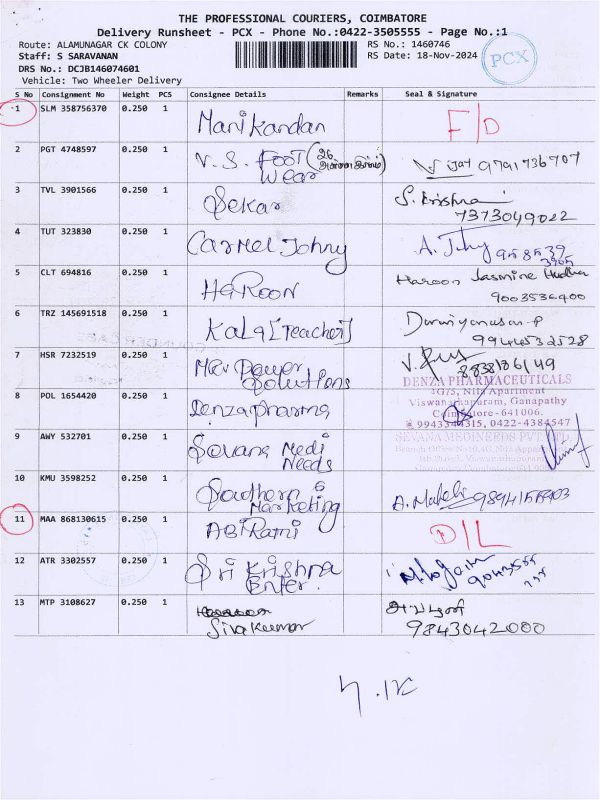 THE PROFESSIONAL COURIERS, COIMBATORE
Delivery Runsheet - PCX - Phone No.:0422-3505555 - Page No.:1
Route: ALAMUNAGAR CK COLONY RS No.: 1460746
Staff: S SARAVANAN RS Date: 18-Nov-2024
PCX
DRS No.: DCJB146074601
Vehicle: Two Wheeler Delivery
S No Consignment No Weight PCS Consignee Details Remarks Seal & Signature
1 SLM 358756370 0.250 1 Manikandan F/D
2 PGT 4748597 0.250 1 V.S. FOOT Wear 9791736707
3 TVL 3901566 0.250 1 Sekar S. Krishna
7373049022
4 TUT 323830 0.250 1 Carmel Johny
5 CLT 694816 0.250 1 HaROON Haroon Jasmine
9003536400
6 TRZ 145691518 0.250 1 Kala [Teacher]
9944532528
7 HSR 7232519 0.250 1 Power Solutions
8 POL 1654420 0.250 1 Denza pharma
DENZA PHARMACEUTICALS
4G75, Nila Apartment
Viswanathapuram, Ganapathy
Coimbatore-641006.
0422-4384547
9 AWY 532701 0.250 1 Sevana Medi Needs
SEVANA MEDINEEDS PVT LTD.
10 KMU 3598252 0.250 1 Southern Marketing
11 MAA 868130615 0.250 1 ABiRami D/L
12 ATR 3302557 0.250 1 Sri Krishna Enter.
13 MTP 3108627 0.250 1 Siva Kumar
9843042000